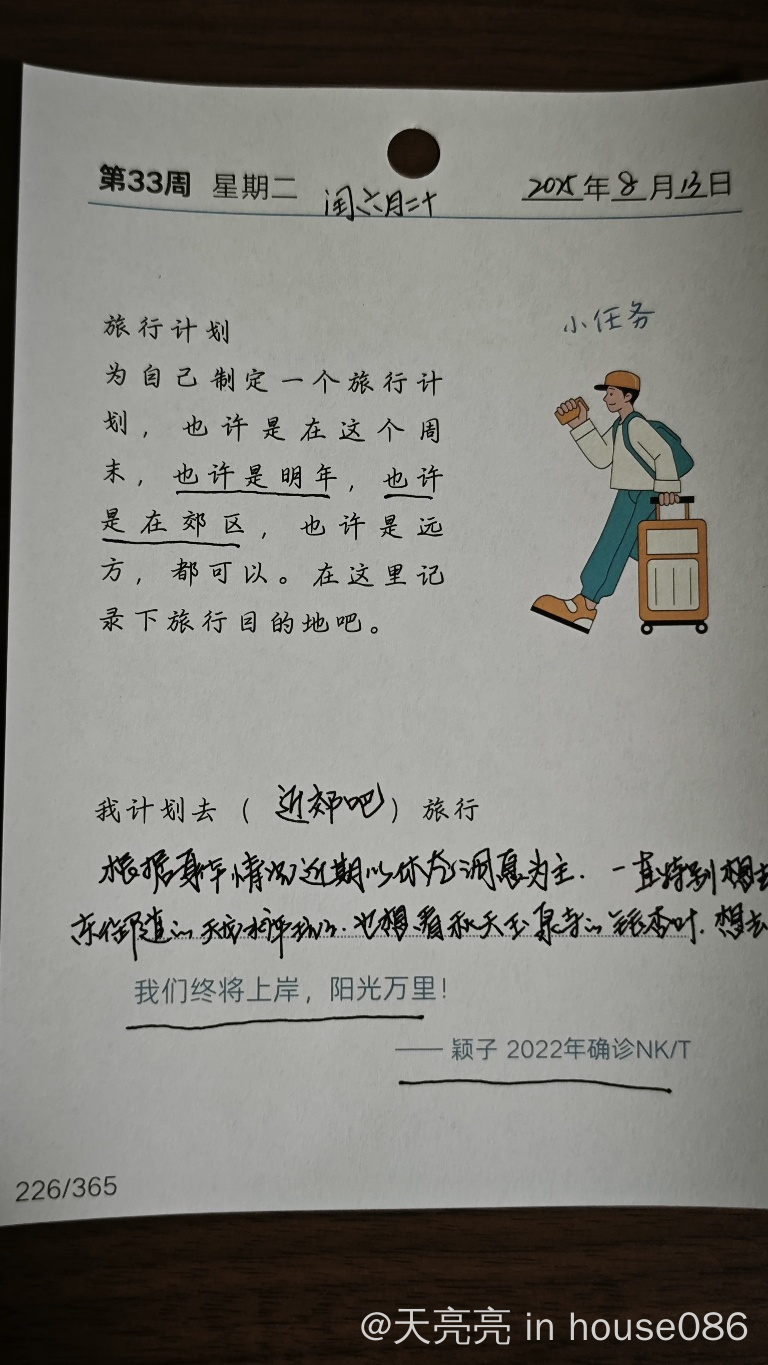 第33周 星期二 闰六月二十 2025年8月13日
小任务
旅行计划
为自己制定一个旅行计
划，也许是在这个周
末，也许是明年，也许
是在郊区，也许是远
方，都可以。在这里记
录下旅行目的地吧。
我计划去（近郊吧）旅行
根据身体情况近期以休养调息为主.一直特别想去
也想看秋天玉泉寺的银杏叶.想去
我们终将上岸，阳光万里！
—— 颖子 2022年确诊NK/T
226/365
@天亮亮 in house086